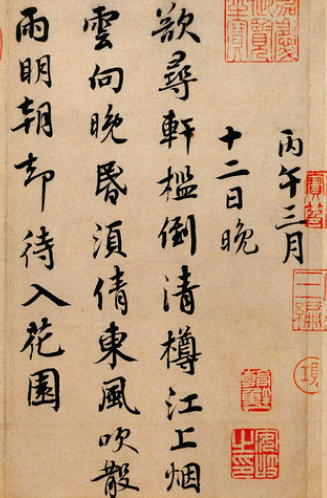 丙午三月
十二日晚
欲尋軒檻倒清樽江上烟
雲向晚昏須倩東風吹散
雨明朝却待入花園